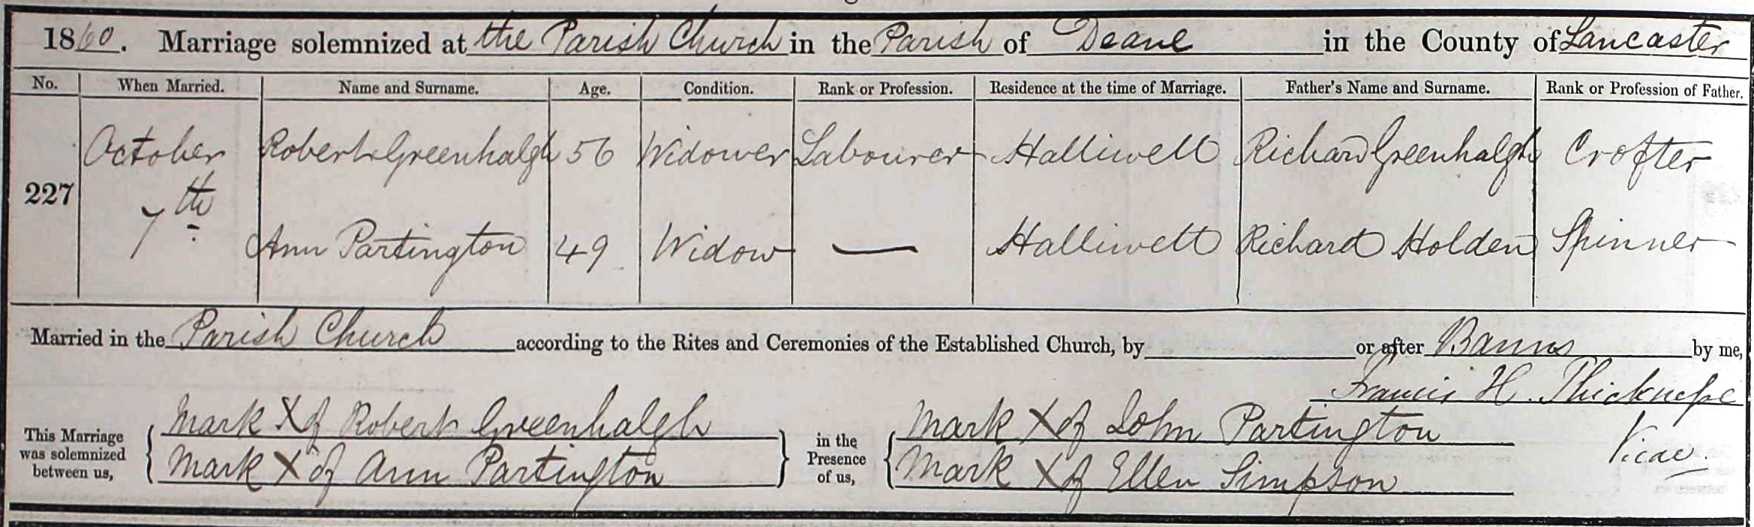 1860. Marriage solemnized at the Parish Church in the Parish of Deane in the County of Lancaster
No. When Married. Name and Surname. Age. Condition. Rank or Profession. Residence at the time of Marriage. Father's Name and Surname. Rank or Profession of Father.
227 October 7th Robert Greenhalgh 56 Widower Labourer Halliwell Richard Greenhalgh Crofter
Ann Partington 49 Widow — Halliwell Richard Holden Spinner
Married in the Parish Church according to the Rites and Ceremonies of the Established Church, by or after Banns by me,
Francis H. Thicknesse
Vicar.
This Marriage was solemnized between us,
Mark X of Robert Greenhalgh
Mark X of Ann Partington
in the Presence of us,
Mark X of John Partington
Mark X of Ellen Simpson